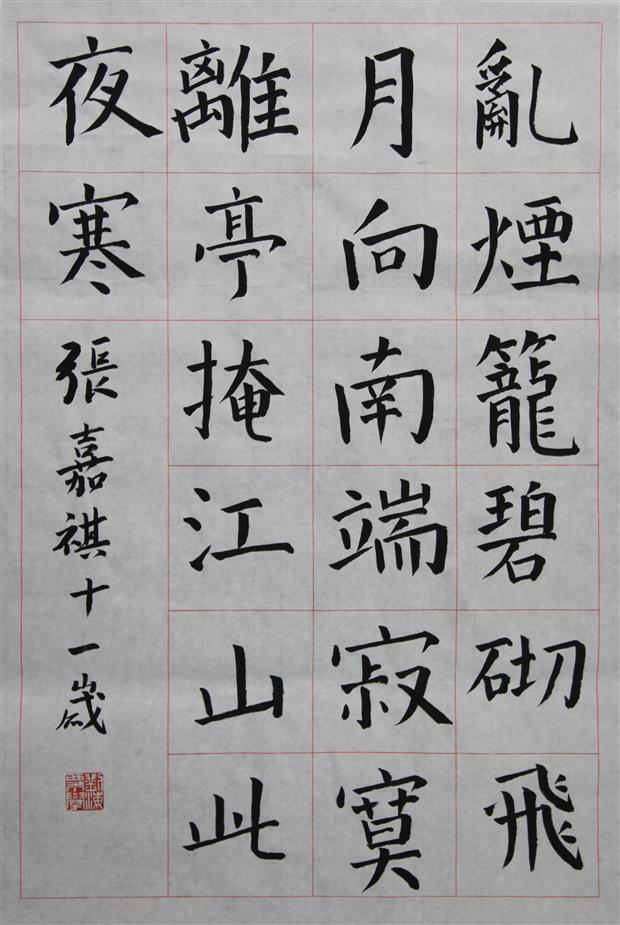 亂煙籠碧砌飛
月向南端寂寞
離亭掩江山此
夜寒
張嘉祺十一歲